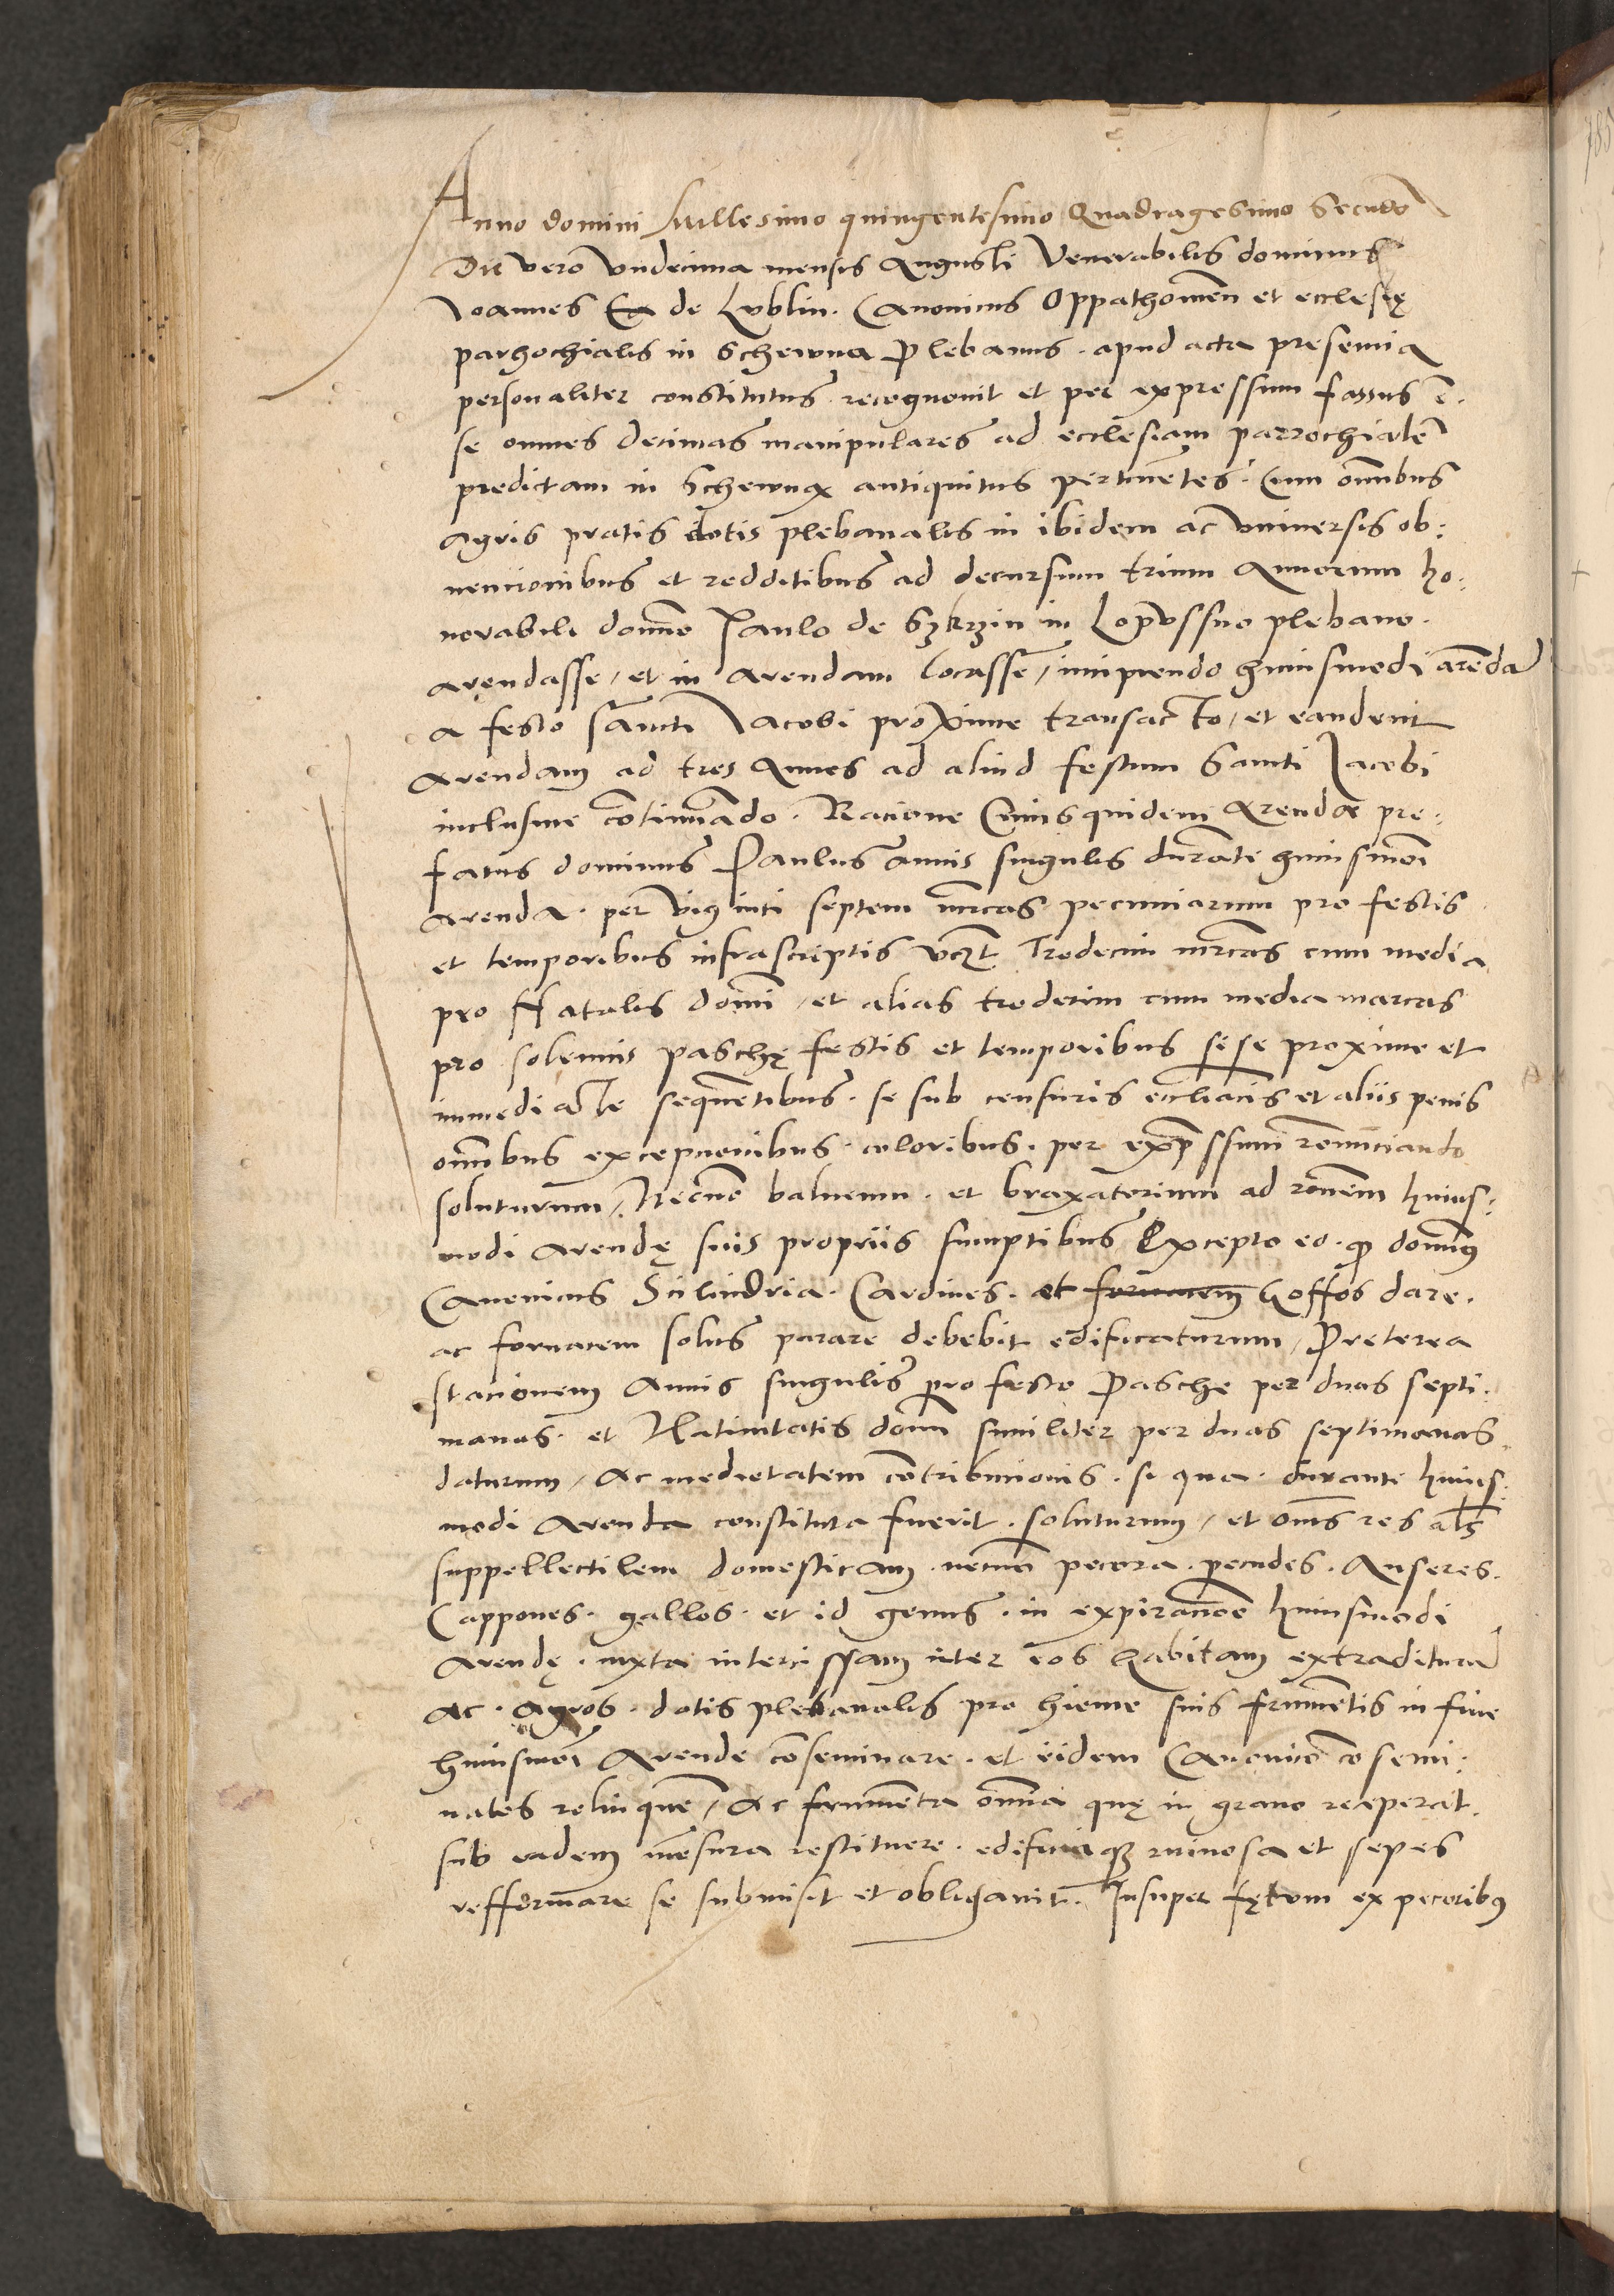 Anno domini Millesimo quingentesimo Quadragesimo Secūdo
Die vero vndecima mensis Augusti Venerabilis dominus
Ioannes de Lublin. Canonicus Oppathomieñ et ecclesię
parhochialis in Schewna Plebanus. apud acta presentia
personaliter constitutus recognovit et per expressum fassus ē.
se omnes decimas manipulares ad ecclesiam parrochialē
predictam in Schewna antiquitus pertinētes. Cum om̄ibus
agris pratis dotis plebanalis in ibidem ac vniversis ob:
nencionibus et redditibus ad decursum trium Annorum ho:
norabili domino Paulo de in plebano.
arendasse, et in arendam locasse, incipiendo huiusmodi arēdā
a festo sancti Iacobi proxime transacto, et eandem
arendam ad tres Annos ad aliud festum Sancti Iacobi
inclusive cōtinuādo. Racione Cuiusquidem Arendæ pre:
fatus dominus Paulus annis singulis durāte huiusmōi
arenda. per viginti septem mrcas pecuniarum pro festis
et temporibus infrascriptis vczt Tredecim mrcas cum media
pro Natalis domī, et alias tredecim cum media marcas
pro solemnis paschę festis et temporibus sese proxime et
immediate sequētibus. se sub censuris eccliacis et aliis penis
om̄ibus excepcionibus. coloribus. per exp̄ssum renunciando
soluturum, Necnō balneum. et braxatorium ad rōnem huius:
modi arendę suis propriis sumptibus Excepto eo. q domin9
Canonicus Scilindria. Cardines. et fornacem hoffos dare.
ac fornacem solus parare debebit edificaturum, Preterea
stacionem Annis singulis pro festo Paschę per duas septi:
manas. et Nativitatis domī similiter per duas septimanas
daturum, Ac medietatem cōtribucionis. si qua. durante huius:
modi Arenda constituta fuerit. soluturum, et om̄s res als
suppellectilem domesticam. necnō pecora. pecudes. Anseres.
Cappones. gallos. et id genus. in expiracione huiusmodi
Arendę. iuxta intercissam inter eos habitam extraditurū
Ac. agros. dotis plebanalis pro hieme suis frumētis in fine
huiusmōi Arende cōseminare. et eidem Canonico cōsemi:
natos relinquere, Ac frumenta om̄ia quę in grano receperat.
sub eadem mēsura restituere. edificiaq3 ruinosa et sepes
refformare se submisit et obligavit. Insuper fętum ex pecorib9